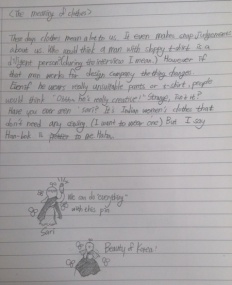 <The meaning of clothes>
These days clothes mean a lot to us. It even makes snap judgements
about us. Who would think a man with choppy t-shirt is a
different person (during the interview I mean.) However if
that man works for design company the thing changes.
Even if he wears really unsuitable pants or t-shirt, people
would think "Ooh he's really creative!" Strange, isn't it?
Have you ever seen "sari"? It's Indian women's clothes that
don't need any sewing (I want to wear one) But I say
Han-bok is prettier to me. Haha.
We can do "everything"
with this pin
Sari
Beauty of Korea!